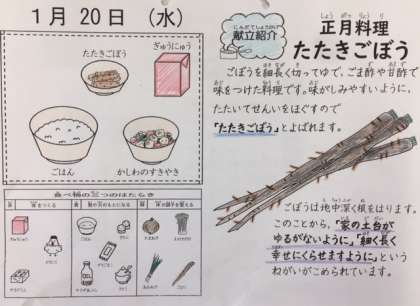 1月20日（水）
たたきごぼう
ぎゅうにゅう
ごはん
かしわのすきやき
食べ物の三つのはたらき
献立紹介
正月料理
たたきごぼう
ごぼうを細長く切ってゆで、ごま酢や甘酢で
味をつけた料理です。味がしみやすいように、
たたいてせんいをほぐすので
「たたきごぼう」とよばれます。
ごぼうは地中深く根をはります。
このことから、「家の土台が
ゆるがないように」「細く長く
幸せにくらせますように」という
ねがいがこめられています。